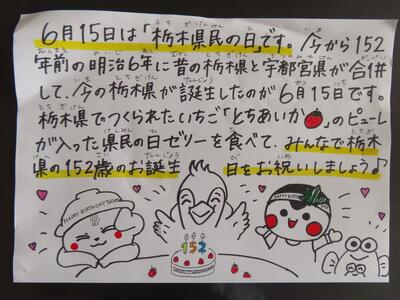 6月15日は「栃木県民の日」です。今から152
年前の明治6年に昔の栃木県と宇都宮県が合併
して、今の栃木県が誕生したのが6月15日です。
栃木県でつくられたいちご「とちあいか」のピューレ
が入った県民の日ゼリーを食べて、みんなで栃木
県の152歳のお誕生日をお祝いしましょう♪
HAPPY BIRTHDAY
152
HAPPY BIRTH